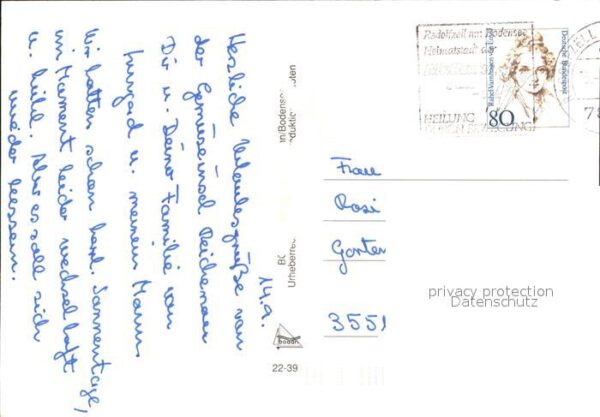 14.9.
Herzliche Urlaubsgrüße von
der Gemüseinsel Reichenau
Dir u. Deiner Familie von
Irmgard u. meinem Mann.
Wir hatten schon herrl. Sonnentage,
im Moment leider wechselhaft
u. kühl. Aber es soll sich
wieder bessern.
Radolfzell am Bodensee
Heimatstadt der
HEILUNG
80
Deutsche Bundespost
Frau
Rosi
Garter
3551
Urheberrec
bodan
22-39
privacy protection
Datenschutz